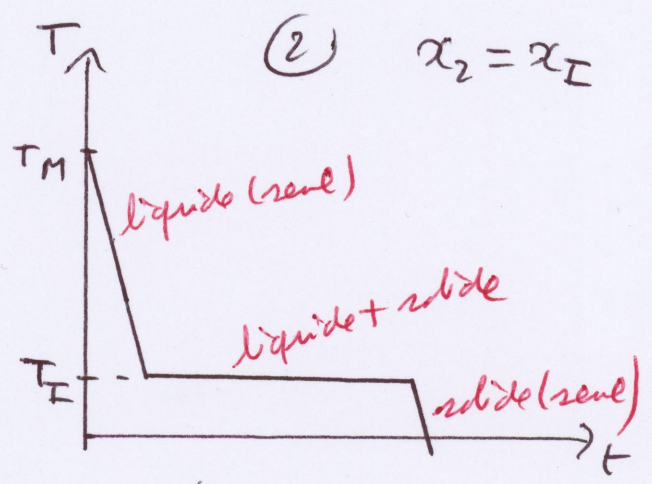 T
② x₂ = x_I
T_M
liquide (seul)
liquide + solide
T_I
solide (seul)
t